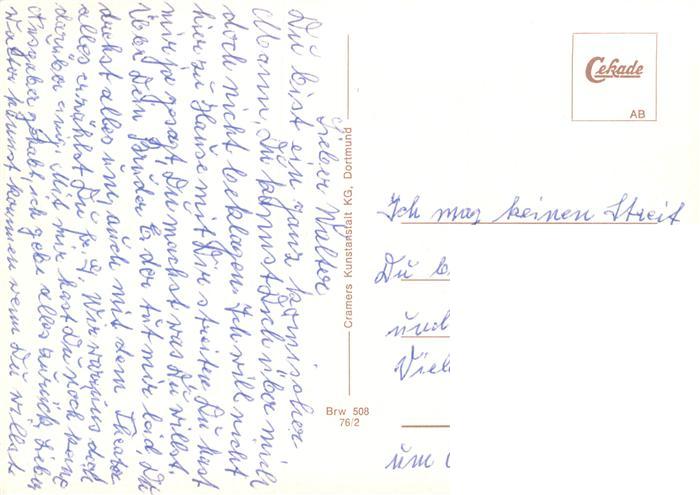 Lieber Walter
Du bist ein ganz komischer
Mann, Du kannst Dich über mich
doch nicht beklagen. Ich will nicht
hier zu Hause mit Dir streiten Du hast
mir ja gesagt, Du machst was Du willst.
Über Dein Bruder E der tut mir leid, Du
alles erzählst Du
darüber einig. Mit mir hast Du noch keine
Ausgaben gehabt ich gebe alles zurück. Lieber
Walter kannst kommen wenn Du willst
Cramers Kunstanstalt KG, Dortmund
Brw 508
76/2
Cekade
AB
Ich mag keinen Streit
Du
und
Viel
um